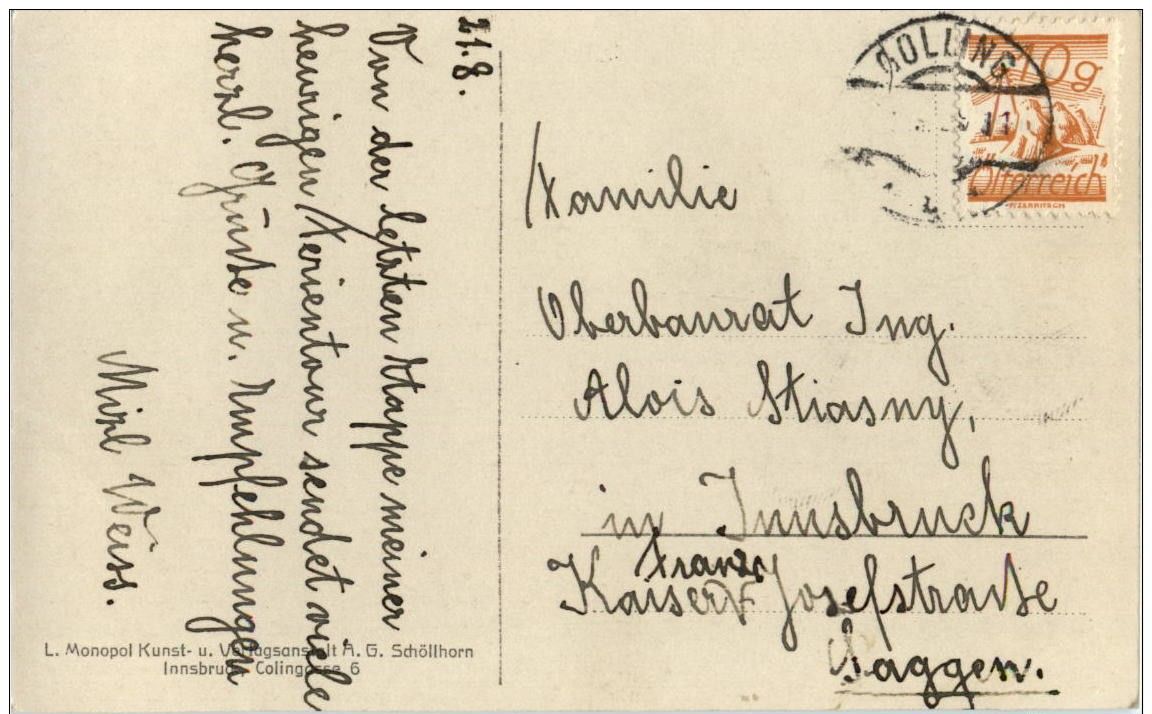 21.8.
Von der letzten Etappe meiner
heurigen Ferientour sendet viele
herzl. Grüße u. Empfehlungen
Mizl Weiss.
GOLLING
10g
Österreich
Familie
Oberbaurat Ing.
Alois Stiasny,
in Innsbruck
Franz
Kaiser F Josefstraße
Saggen.
L. Monopol Kunst- u. Verlagsanstalt A. G. Schöllhorn
Innsbruck, Colingasse 6